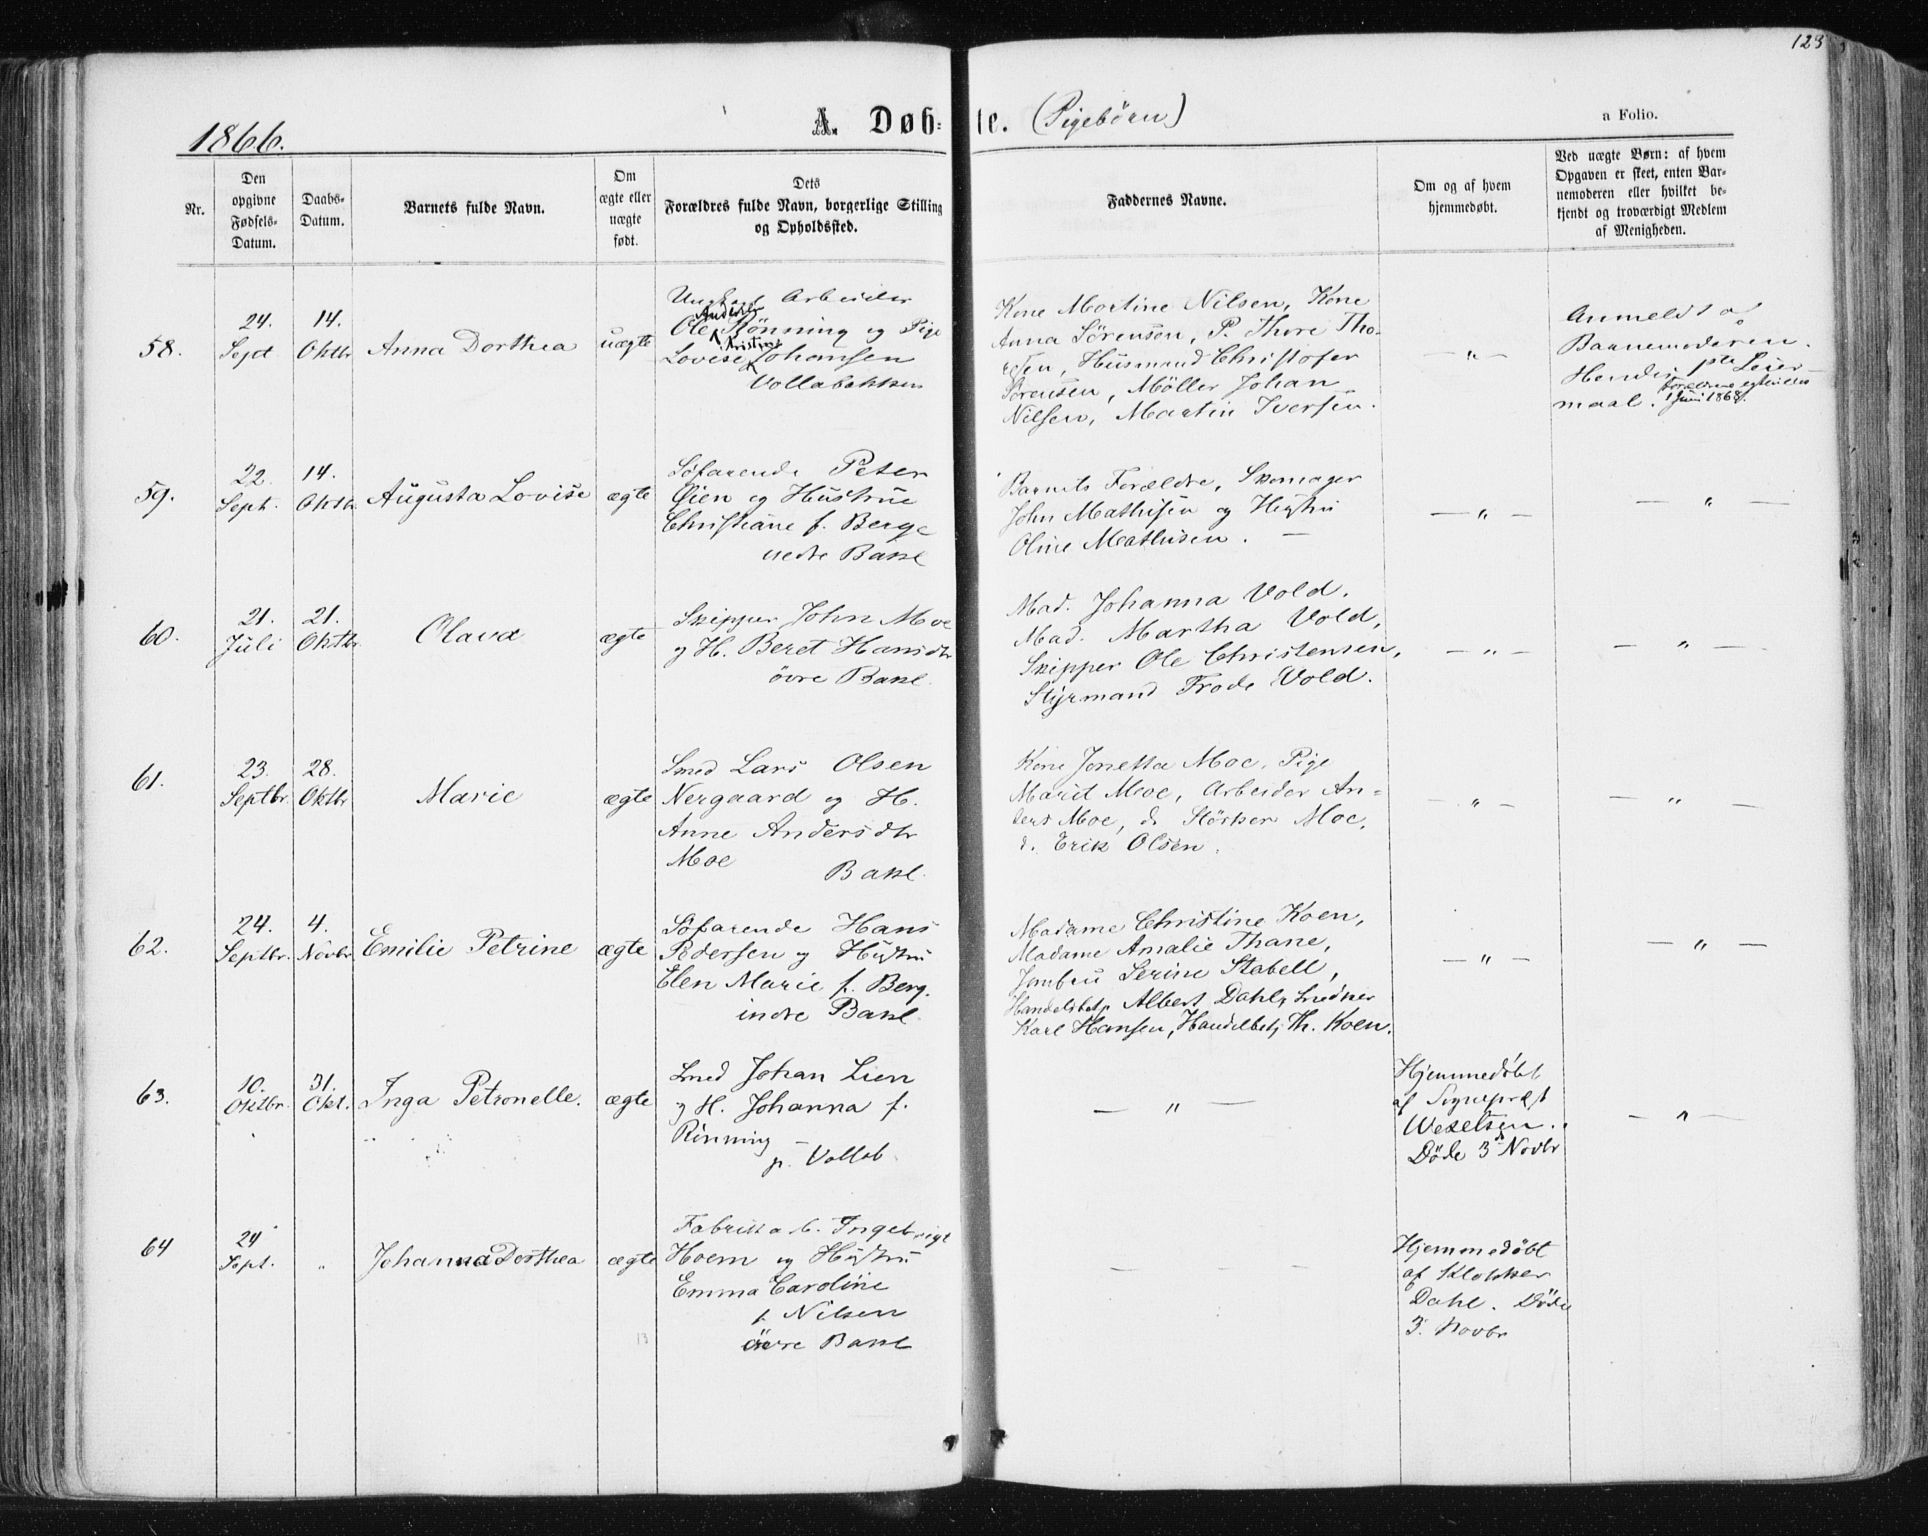 123
1866.
A. Døb-te. (Pigebörn)
a Folio.
Nr.
Den opgivne Fødsels-Datum.
Daabs-Datum.
Barnets fulde Navn.
Om ægte eller uægte født.
Dets Forældres fulde Navn, borgerlige Stilling og Opholdssted.
Faddernes Navne.
Om og af hvem hjemmedøbt.
Ved uægte Børn: af hvem Opgaven er skeet, enten Barnemoderen eller hvilket bekjendt og troværdigt Medlem af Menigheden.
58.
24. Sept
14. Oktbr
Anna Dorthea
uægte
Ungkarl Arbeider
Andersen
Ole Rönning og Pige
Kristine
Lovise Johansen
Vollabakken
Kone Martine Nilsen, Kone
Anna Sörensen, P. Thore Tho-
resen, Husmand Christofer
Sörensen, Möller Johan
Nilsen, Martin Iversen.
— " —
Anmeldt af
Barnemoderen.
Hendes Leier-
maal.
1868.
59.
22. Sept.
14. Oktbr.
Augusta Lovise
ægte
Söfarende Peter
Øien og Hustrue
Christiane f. Berge
nedre Bakl
Barnets Forældre, Skomager
John Mathisen og Hustru
Oline Mathisen. —
— " —
— " —
60.
21. Juli
21. Oktbr.
Olava
ægte
Skipper John Moe
og H. Beret Hansdtr
övre Bakl.
Mad. Johanna Vold.
Mad. Martha Vold,
Skipper Ole Christensen,
Styrmand Frode Vold.
— " —
— " —
61.
23. Septbr.
28. Oktbr.
Marie
ægte
Smed Lars Olsen
Nergaard og H.
Anne Andersdtr
Moe
Bakl.
Kone Jonetta Moe, Pige
Marit Moe, Arbeider An-
ders Moe, d. Störker Moe,
d. Erik Olsen.
— " —
— " —
62.
24. Septbr.
4. Novbr.
Emilie Petrine
ægte
Söfarende Hans
Pedersen og Hustru
Elen Marie f. Berg.
indre Bakl.
Madame Christine Koen,
Madame Amalie Thane,
Jomfru Serine Stabell,
Handelsbetj. Albert Dahl, Snedker
Karl Hansen, Handelbetj. Th. Koen.
— " —
— " —
63.
10. Oktbr.
31. Okt.
Inga Petronelle.
ægte
Smed Johan Lien
og H. Johanna f.
Rönning —
p. Vollab.
— " —
Hjemmedöbt
af Sognepræst
Wexelsen.
Döde 3d Novbr
— " —
64
24 Sept.
"
Johanna Dorthea
ægte
Fabrikarb. Ingebrigt
Hoem og Hustru
Emma Caroline
f. Nilsen
övre Bakl
— — —
Hjemmedöbt
af Klokker
Dahl. Döde
3. Novbr